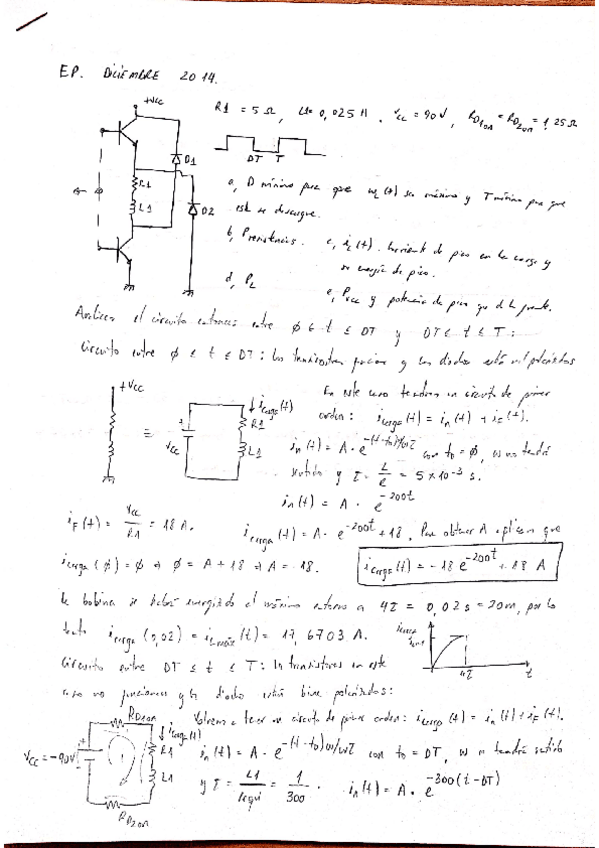 EP. DICIEMBRE 2014.
+Vcc
R1 = 5 Ω, L1 = 0,025 H, Vcc = 90V, RD1on = RD2on = 1,25 Ω
D1
DT T
R1
L1
D2
a, D mínimo para que wL(t) sea máximo y T mínimo para que
esta se descargue.
b, Presistencias. c, iL(t). Corriente de pico en la carga y
su energía de pico.
d, PL
e, PVcc y potencia de pico que da la fuente.
Analicemos el circuito entonces entre Ø ≤ t ≤ DT y DT ≤ t ≤ T:
Circuito entre Ø ≤ t ≤ DT: los transistores funcionan y los diodos están mal polarizados
+Vcc
≡
Vcc
icarga(t)
R1
L1
En este caso tendremos un circuito de primer
orden: icarga(t) = in(t) + iF(t).
in(t) = A · e^-(t-to)/τ con to = Ø, w no tendrá
sentido y τ = L/R = 5 x 10^-3 s.
in(t) = A · e^-200t
iF(t) = Vcc/R1 = 18 A. icarga(t) = A · e^-200t + 18. Para obtener A aplicamos que
icarga(Ø) = Ø ⇒ Ø = A + 18 ⇒ A = -18. icarga(t) = -18 e^-200t + 18 A
La bobina se habrá energizado al máximo entorno a 4τ = 0,02 s = 20m, por lo
tanto icarga(0,02) = iLmáx(t) = 17,6703 A.
4τ t
Circuito entre DT ≤ t ≤ T: los transistores en este
caso no funcionan y los diodos están bien polarizados:
RD1on
icarga(t)
Vcc = -90V
R1
L1
RD2on
Volvemos a tener un circuito de primer orden: icarga(t) = in(t) + iF(t).
in(t) = A · e^-(t-to)/τ con to = DT, w no tendrá sentido
y τ = L1/Requi = 1/300 . in(t) = A · e^-300(t-DT)